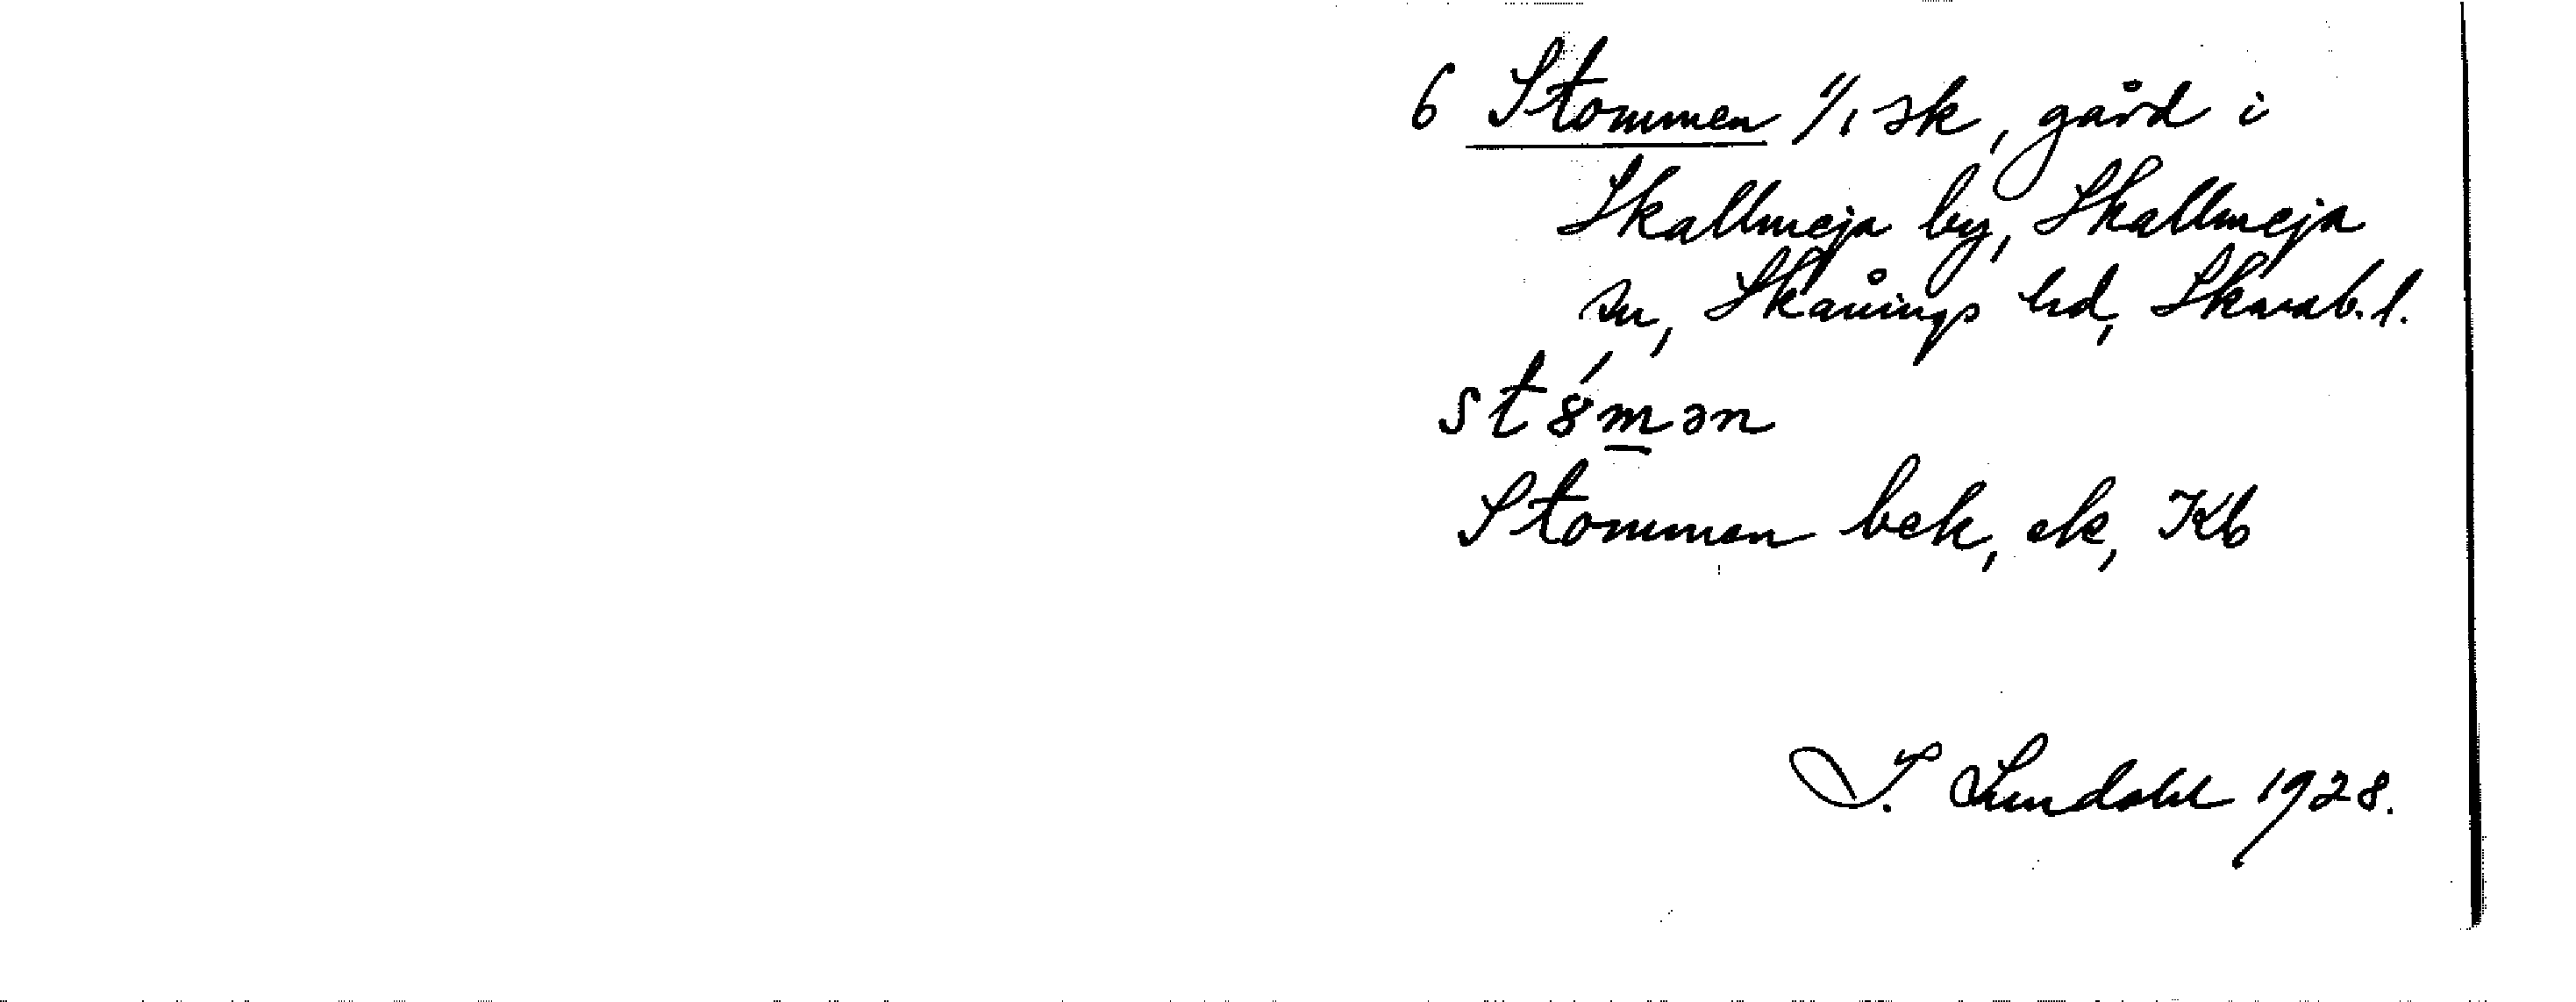 6 Stommen 1/1 sk, gård i
Skallmeja by, Skallmeja
sn, Skånings hd, Skarab.l.
st8́m̲ən
Stommen bek, ek, Kb
I. Lundahl 1928.